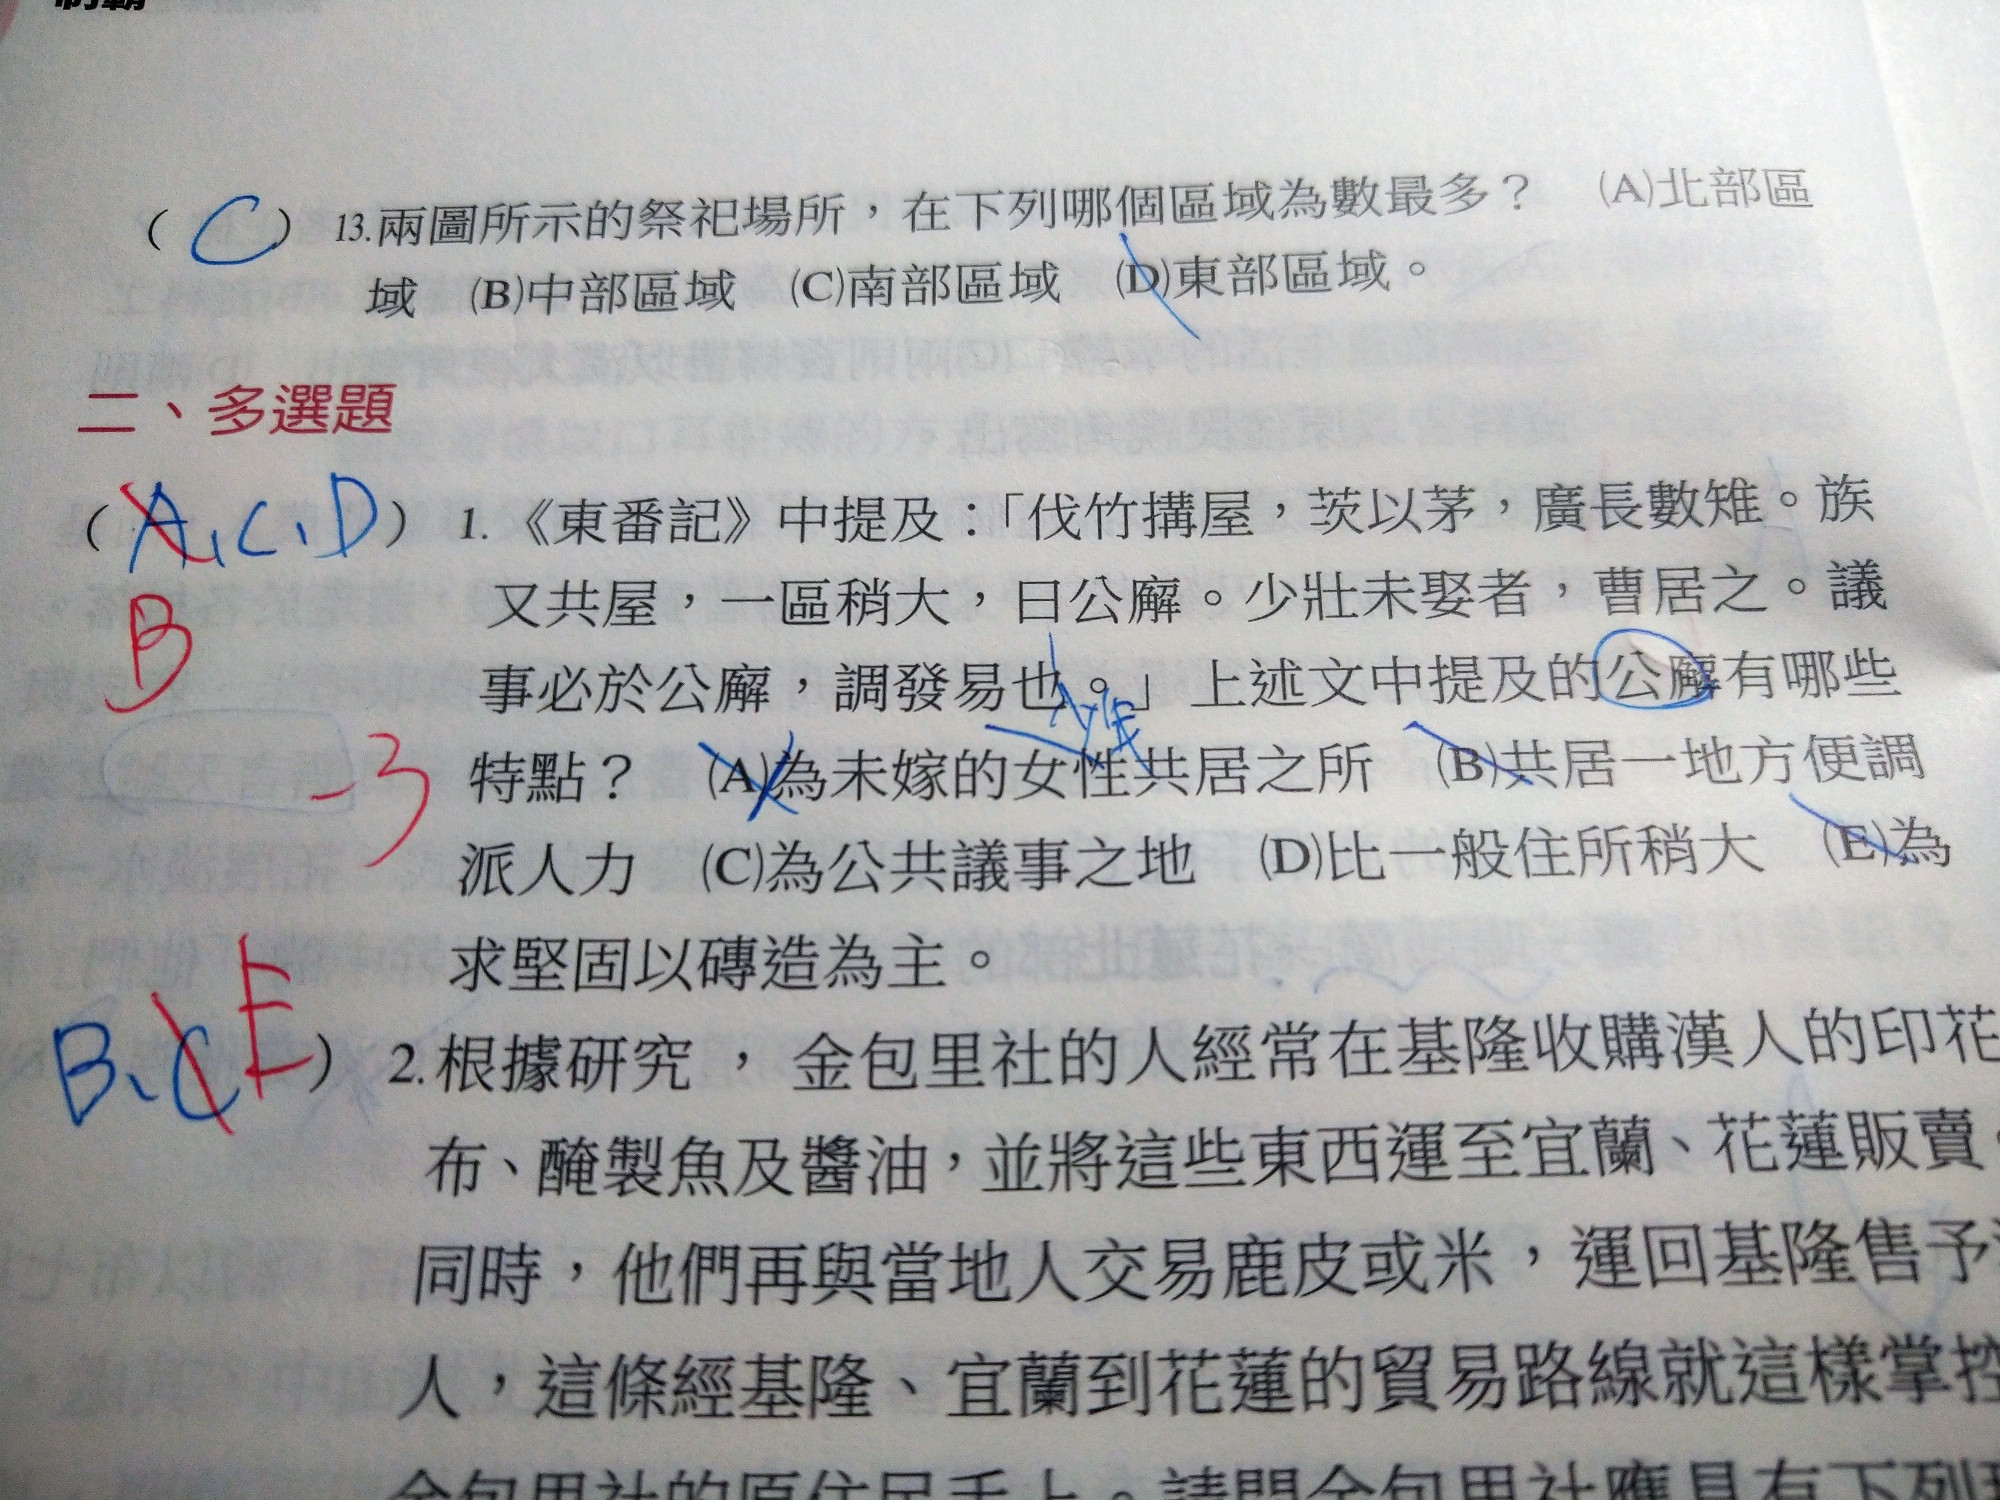 制霸
( C ) 13.兩圖所示的祭祀場所，在下列哪個區域為數最多？ (A)北部區
域 (B)中部區域 (C)南部區域 (D)東部區域。
二、多選題
( A、C、D ) 1.《東番記》中提及：「伐竹搆屋，茨以茅，廣長數雉。族
B
又共屋，一區稍大，曰公廨。少壯未娶者，曹居之。議
事必於公廨，調發易也。」上述文中提及的公廨有哪些
-3
特點？ (A)為未嫁的女性共居之所 (B)共居一地方便調
派人力 (C)為公共議事之地 (D)比一般住所稍大 (E)為
求堅固以磚造為主。
B、C E ) 2.根據研究，金包里社的人經常在基隆收購漢人的印花
布、醃製魚及醬油，並將這些東西運至宜蘭、花蓮販賣。
同時，他們再與當地人交易鹿皮或米，運回基隆售予
人，這條經基隆、宜蘭到花蓮的貿易路線就這樣掌控
金包里社的原住民手上。請問金包里社應具有下列